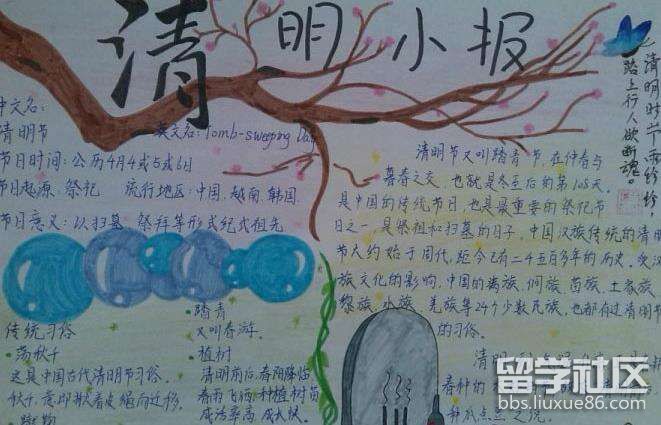 清明小报
清明时节雨纷纷，
路上行人欲断魂。
中文名：
清明节
英文名：Tomb-sweeping Day
节日时间：公历4月4或5或6日
节日起源：祭祀 流行地区：中国，越南，韩国
节日意义：以扫墓、祭拜等形式纪式祖先
传统习俗
·荡秋千
这是中国古代清明节习俗。
秋千，意即揪着皮绳而迁移。
·踏青
又叫春游。
·植树
清明前后，春阳照临
春雨飞洒，种植树苗
成活率高，成大快。
清明节又叫踏青节，在仲春与
暮春之交，也就是冬至后的第108天。
是中国的传统节日，也是最重要的祭祀节
日之一，是祭祖和扫墓的日子，中国汉族传统的清明
节大约始于周代，距今已有二千五百多年的历史。受汉
族文化的影响，中国的满族、侗族、苗族、土家族、
黎族、水族、羌族等24个少数民族，也都有过清明节
的习俗。
清明
春种的
种瓜点豆之说。
留学社区
bbs.liuxue86.com